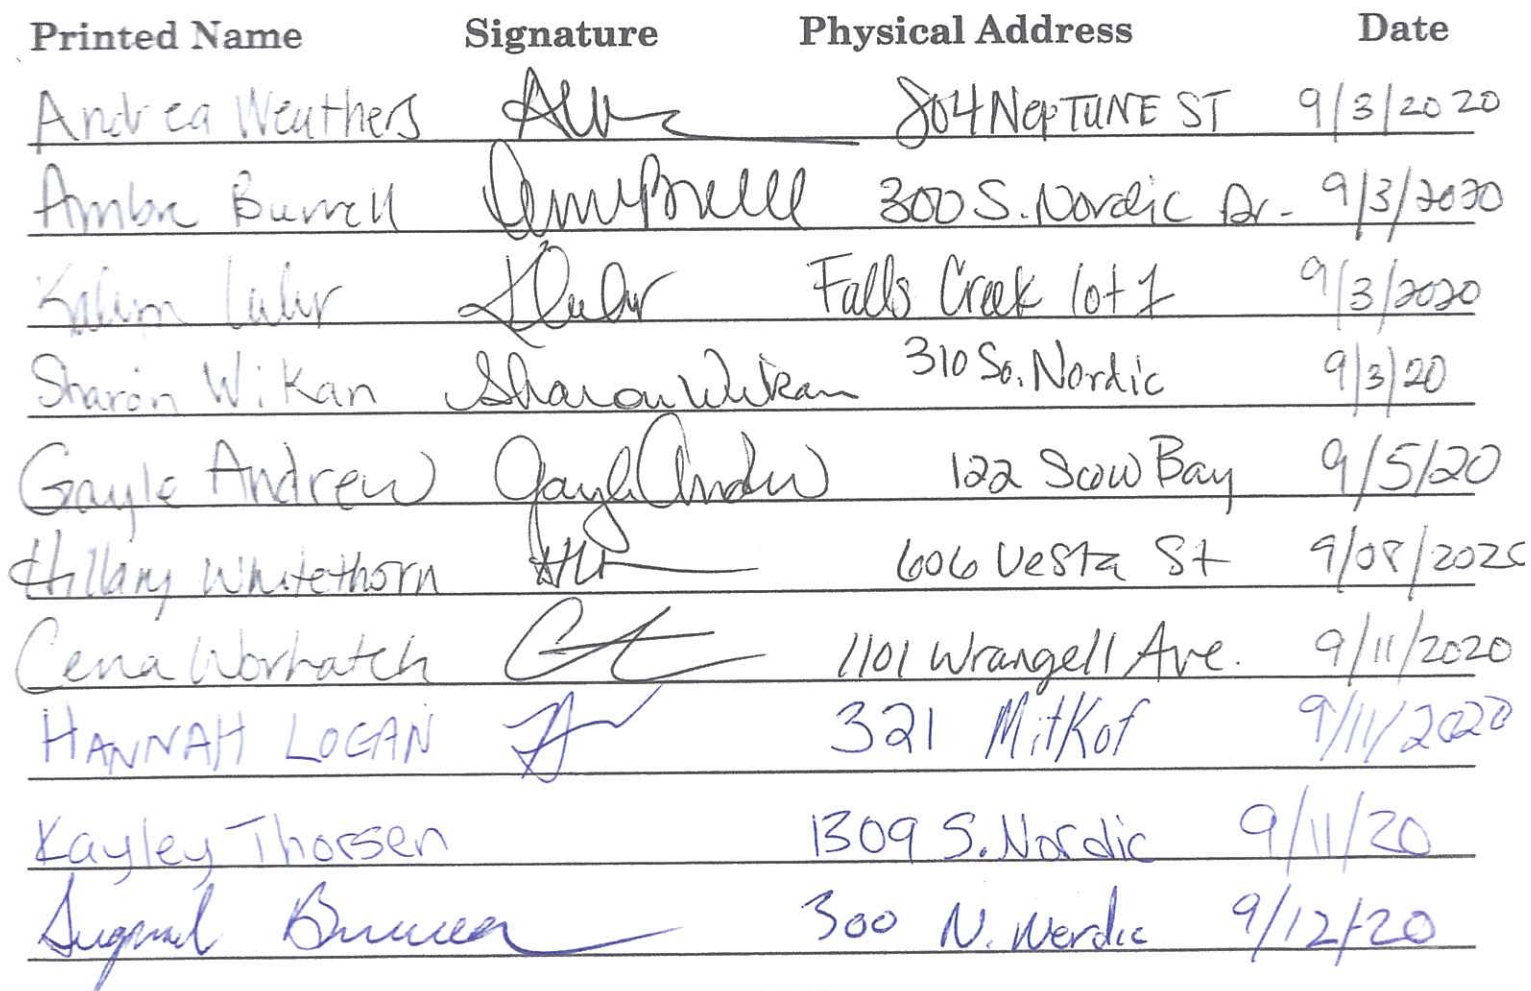 Printed Name Signature Physical Address Date
Andrea Weathers 804 NepTUNE ST 9/3/2020
Ambre Burrell 300 S. Nordic Dr. 9/3/2020
Falls Creek lot 1 9/3/2020
Sharon Wikan Sharon Wikan 310 So. Nordic 9/3/20
Gayle Andrew Gayle Andrew 122 Scow Bay 9/5/20
Hillary Whitethorn 606 Vesta St 9/08/2020
Cena Worhatch 1101 Wrangell Ave. 9/11/2020
HANNAH LOGAN 321 Mitkof 9/11/2020
Kayley Thorsen 1309 S. Nordic 9/11/20
300 N. Nordic 9/12/20